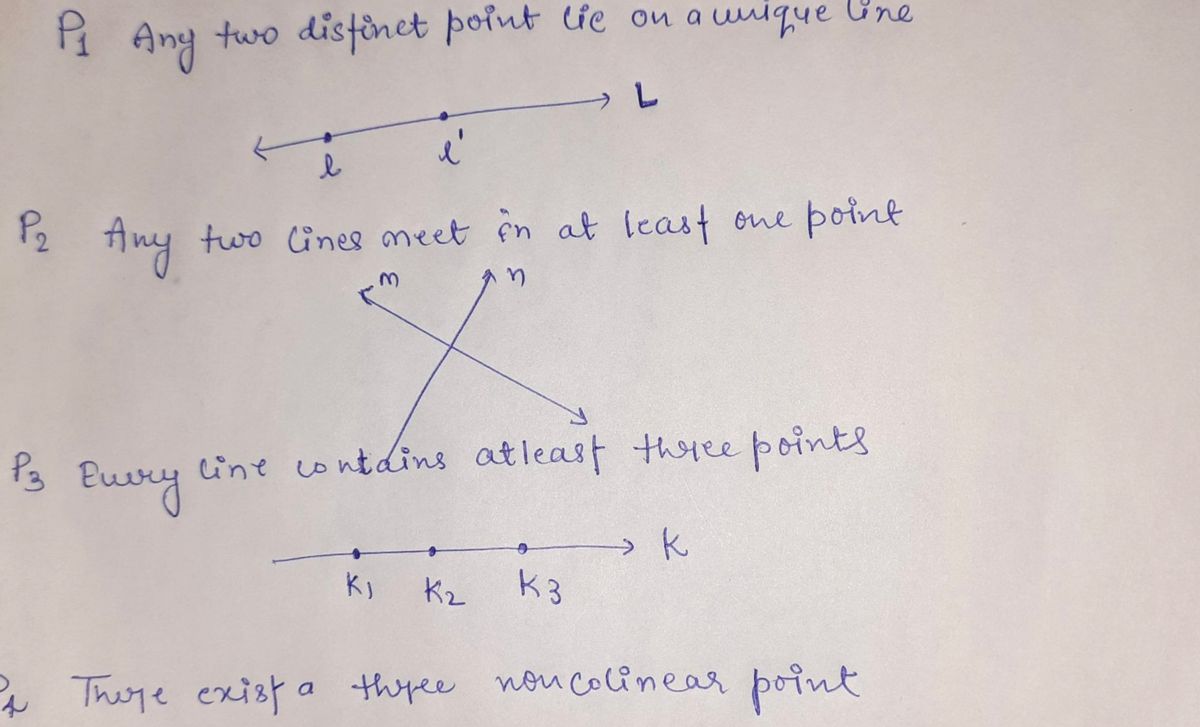 P1 Any two distinct point lie on a unique line
L
l l'
P2 Any two lines meet in at least one point
m n
P3 Every line contains atleast three points
K
K1 K2 K3
There exist a three noncolinear point